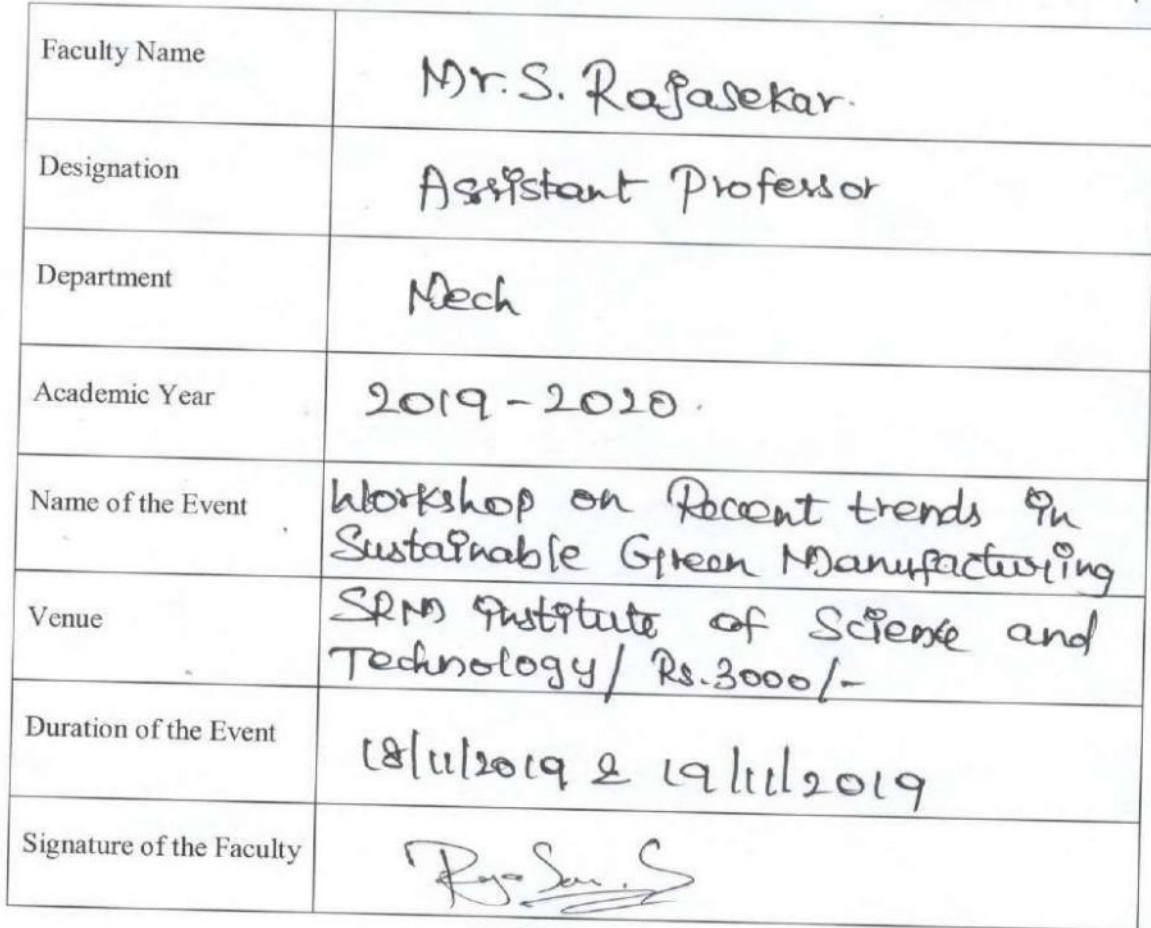 Faculty Name
Mr. S. Rajasekar.
Designation
Assistant Professor
Department
Mech
Academic Year
2019-2020.
Name of the Event
Workshop on Recent trends in
Sustainable Green Manufacturing
Venue
SRM institute of Science and
Technology/ Rs.3000/-
Duration of the Event
18/11/2019 & 19/11/2019
Signature of the Faculty